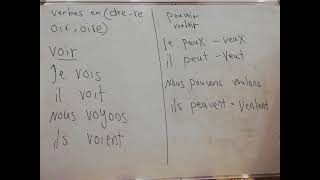 verbes en (dre-re
oir, oire)
voir
Je vois
il voit
nous voyons
ils voient
pouvoir
vouloir
Je peux - veux
il peut - veut
Nous pouvons voulons
ils peuvent - veulent